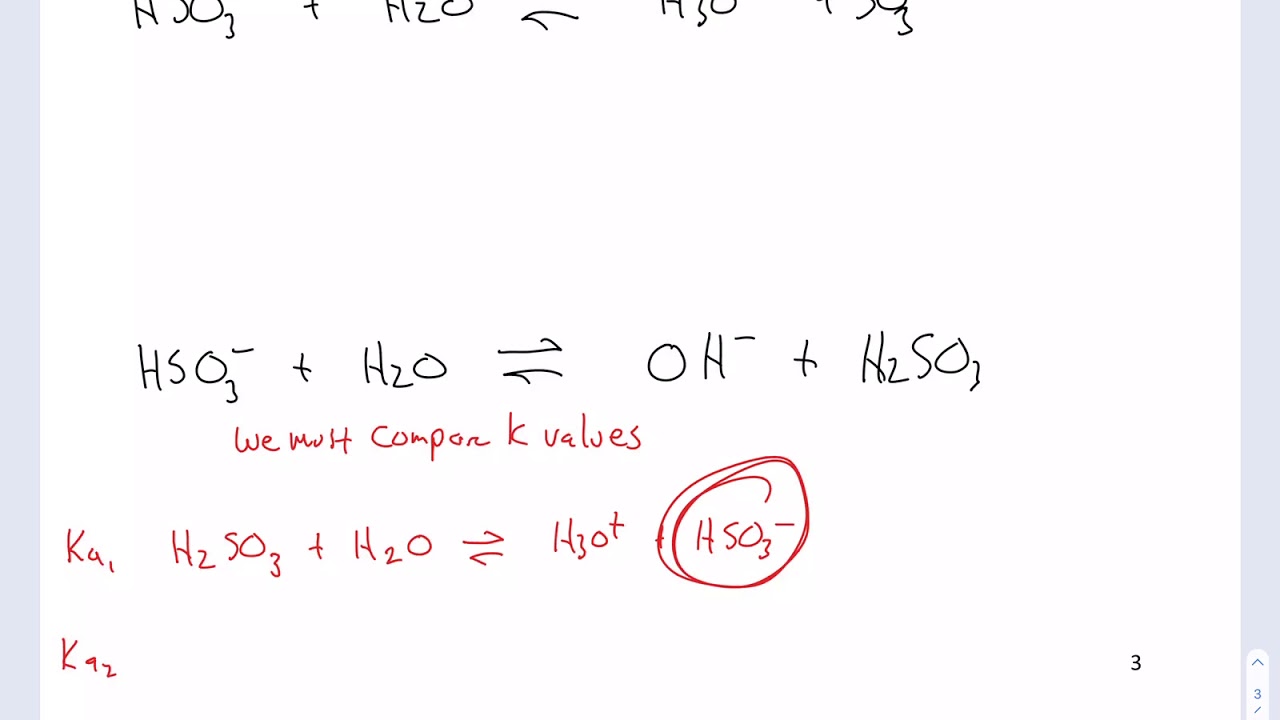 HSO₃ + H₂O ⇌ H₃O + SO₃
HSO₃⁻ + H₂O ⇌ OH⁻ + H₂SO₃
we must compare K values
Ka₁ H₂SO₃ + H₂O ⇌ H₃O⁺ + HSO₃⁻
Ka₂
3
3